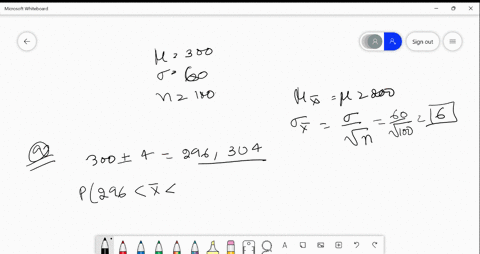 Microsoft Whiteboard
Sign out
μ = 300
σ = 60
n = 100
μx̄ = μ = 300
σx̄ = σ/√n = 60/√100 = 6
(a)
300 ± 4 = 296, 304
P(296 < x̄ <